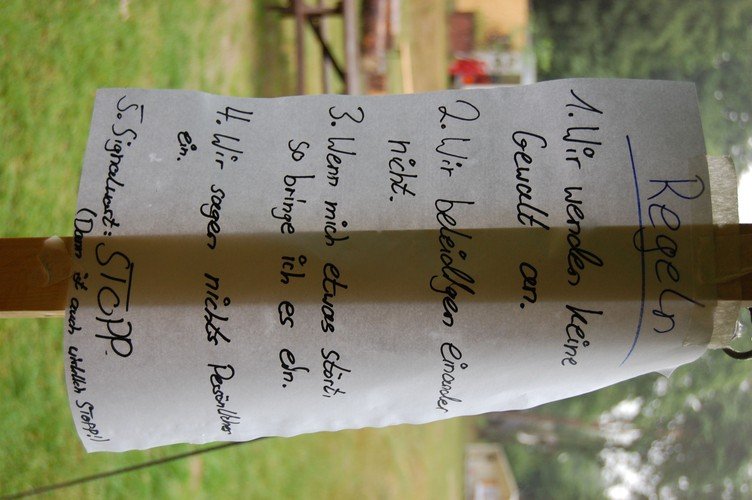 Regeln
1. Wir wenden keine
Gewalt an.
2. Wir beleidigen einander
nicht.
3. Wenn mich etwas stört,
so bringe ich es ein.
4. Wir sagen nichts Persönliches
ein.
5. Signalwort: STOPP.
(Dann ist auch wirklich STOPP!)